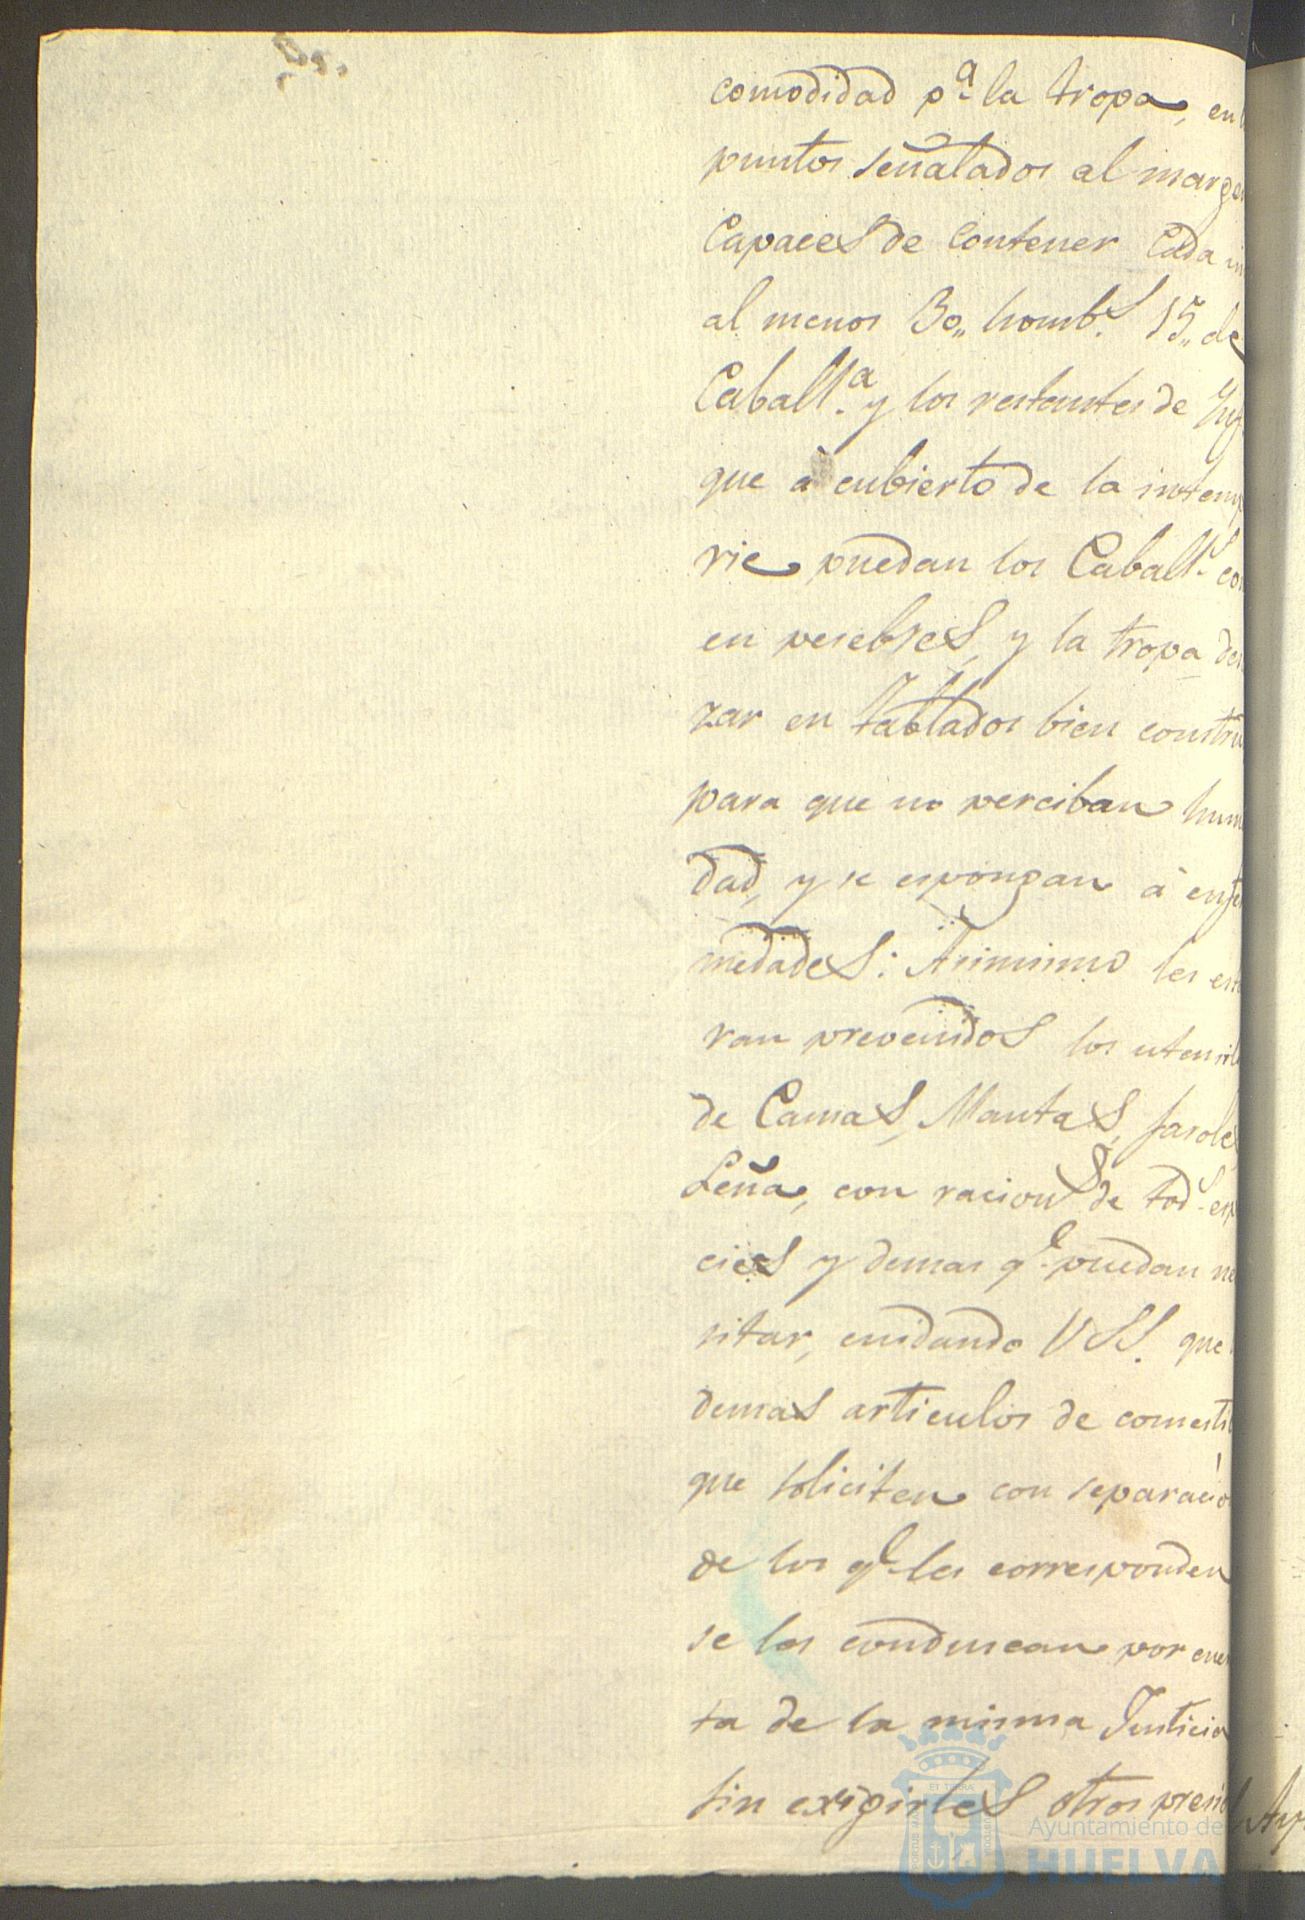 comodidad p.ª la tropa, en
puntos señalados al marge
Capaces de contener Cada
al menos 30,, homb.s 15,, de
Caball.ª y los restantes de Ynf
que à cubierto de la intem
rie puedan los Caball.s co
en pesebres, y la tropa des
zar en tablados bien constru
para que no perciban hum
dad, y se espongan à enfe
medades: Asimismo les est
ran prevenidos los utensil
de Camas, Mantas, faroles
Leña, con racion.s de tod.s esp
cies y demas q.e puedan ne
sitar, cuidando VSS. que
demas articulos de comesti
que soliciten con separació
de los q.e les corresponden
se los conduscan por cuen
ta de la misma Justicia
sin exigirles otros precio
Ayuntamiento de
HUELVA